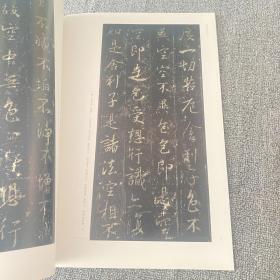 度一切苦厄舍利子色不
異空空不異色色即是空
空即是色受想行識亦復
如是舍利子是諸法空相不
不垢不淨不增不
故空中無色無受想行